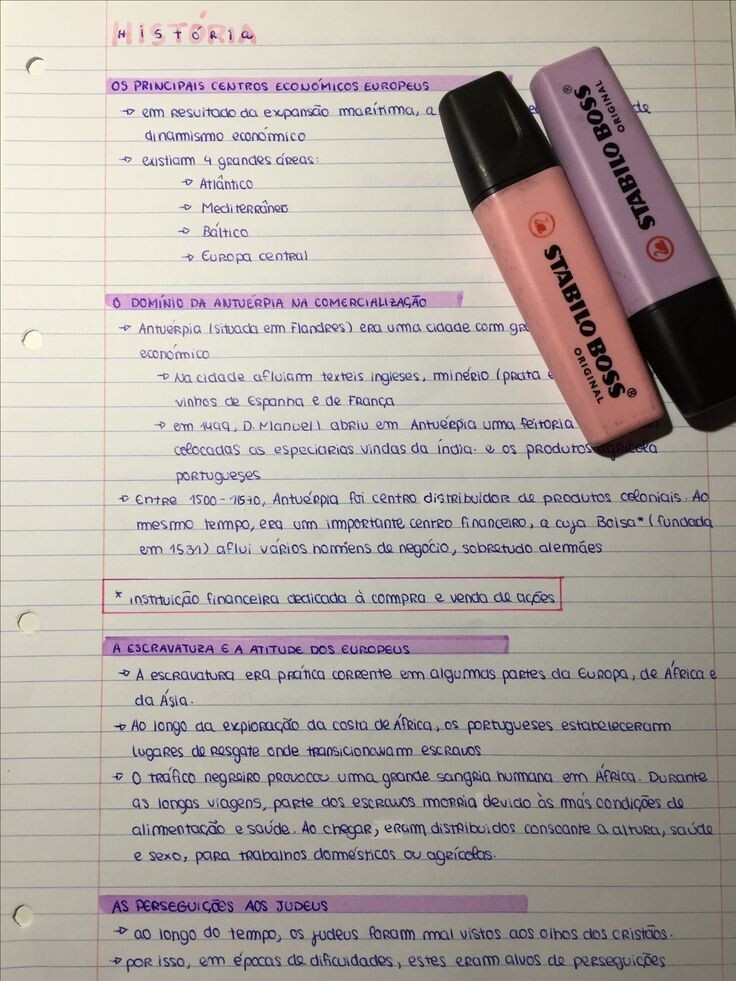 HISTÓRIA
OS PRINCIPAIS CENTROS ECONÓMICOS EUROPEUS
→ em resultado da expansão marítima, a de
dinamismo económico
→ existiam 4 grandes áreas:
→ Atlântico
→ Mediterrâneo
→ Báltico
→ Europa central
O DOMÍNIO DA ANTUÉRPIA NA COMERCIALIZAÇÃO
→ Antuérpia (situada em Flandres) era uma cidade com
económico
→ Na cidade afluiam texteis ingleses, minério (prata e
vinhos de Espanha e de França
→ em 1499, D. Manuel I abriu em Antuérpia uma feitoria
colocadas as especiarias vindas da Índia. e os produtos agrícola
portugueses
→ Entre 1500-1570, Antuérpia foi centro distribuidor de produtos coloniais. Ao
mesmo tempo, era um importante centro financeiro, a cuja Bolsa* (fundada
em 1531) aflui vários homens de negócio, sobretudo alemães
* instituição financeira dedicada à compra e venda de ações
A ESCRAVATURA E A ATITUDE DOS EUROPEUS
→ A escravatura era prática corrente em algumas partes da Europa, de África e
da Ásia.
→ Ao longo da exploração da costa de África, os portugueses estabeleceram
lugares de resgate onde transicionavam escravos
→ O tráfico negreiro provocou uma grande sangria humana em África. Durante
as longas viagens, parte dos escravos morria devido às más condições de
alimentação e saúde. Ao chegar, eram distribuidos consoante a altura, saúde
e sexo, para trabalhos domésticos ou agrícolas.
AS PERSEGUIÇÕES AOS JUDEUS
→ ao longo do tempo, os judeus foram mal vistos aos olhos dos cristãos.
→ por isso, em épocas de dificuldades, estes eram alvos de perseguições
STABILO BOSS®
ORIGINAL
STABILO BOSS®
ORIGINAL